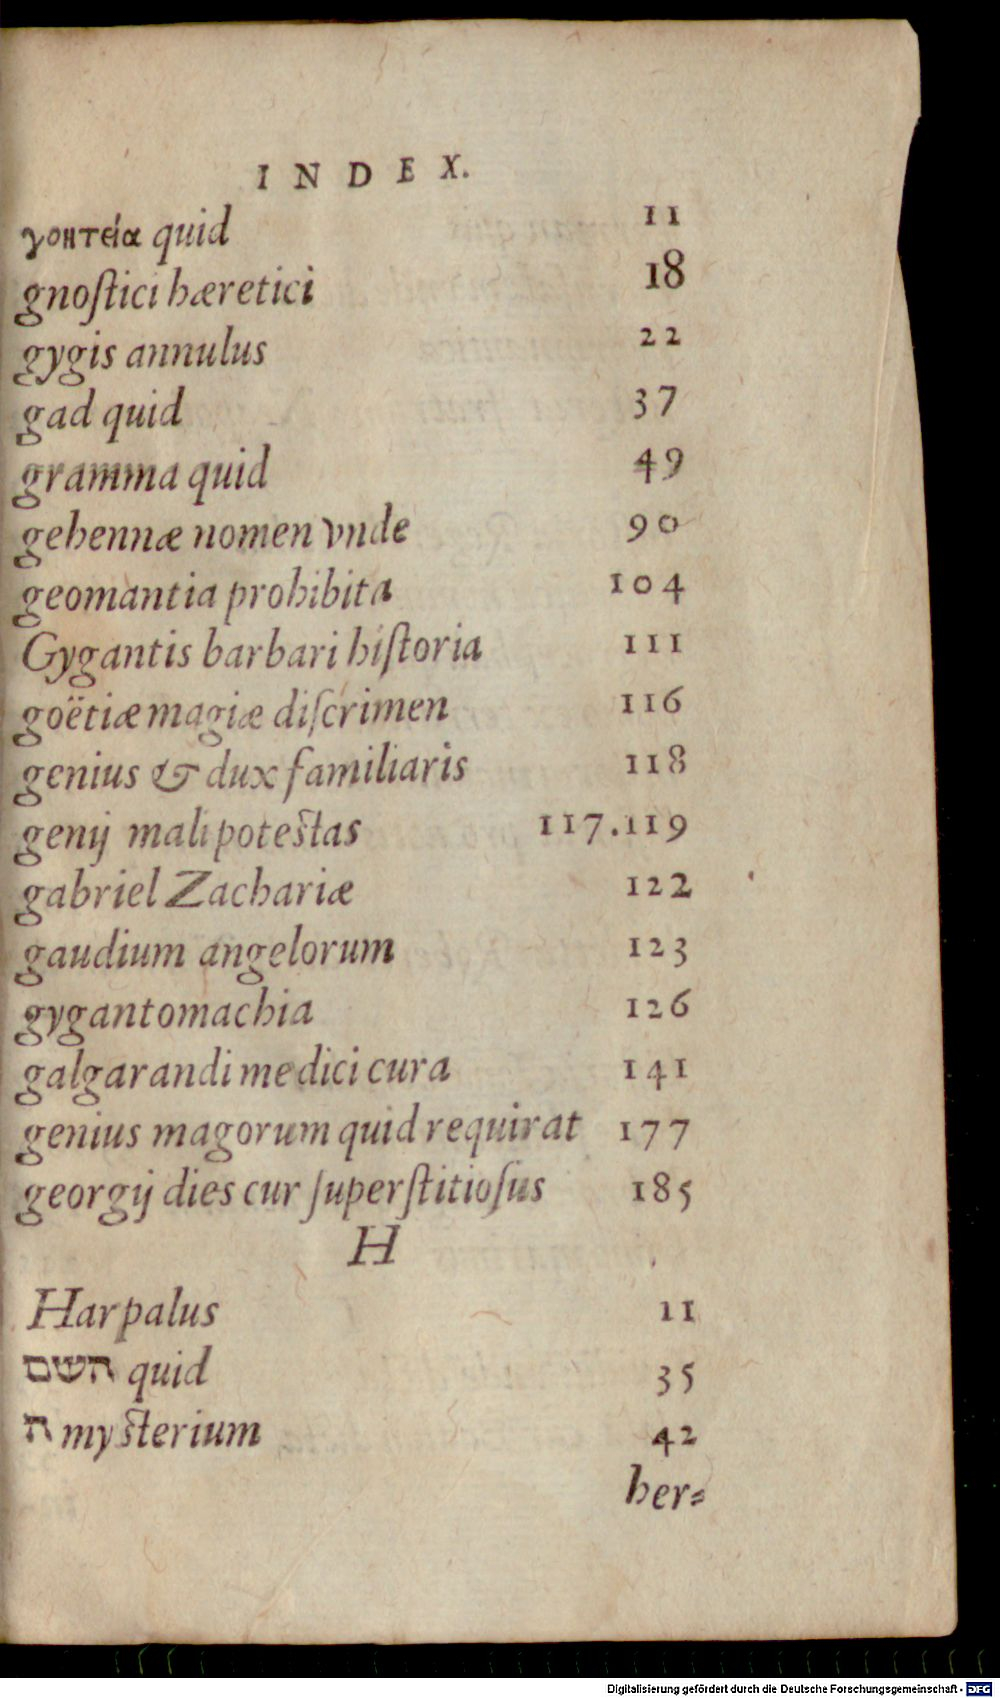 INDEX.
γοητεία quid 11
gnoſtici hæretici 18
gygis annulus 22
gad quid 37
gramma quid 49
gehennæ nomen vnde 90
geomantia prohibita 104
Gygantis barbari hiſtoria 111
goëtiæ magiæ diſcrimen 116
genius & dux familiaris 118
genij mali poteſtas 117.119
gabriel Zachariæ 122
gaudium angelorum 123
gygantomachia 126
galgarandi medici cura 141
genius magorum quid requirat 177
georgij dies cur ſuperſtitioſus 185
H
Harpalus 11
השם quid 35
ה myſterium 42
her=
Digitalisierung gefördert durch die Deutsche Forschungsgemeinschaft - DFG